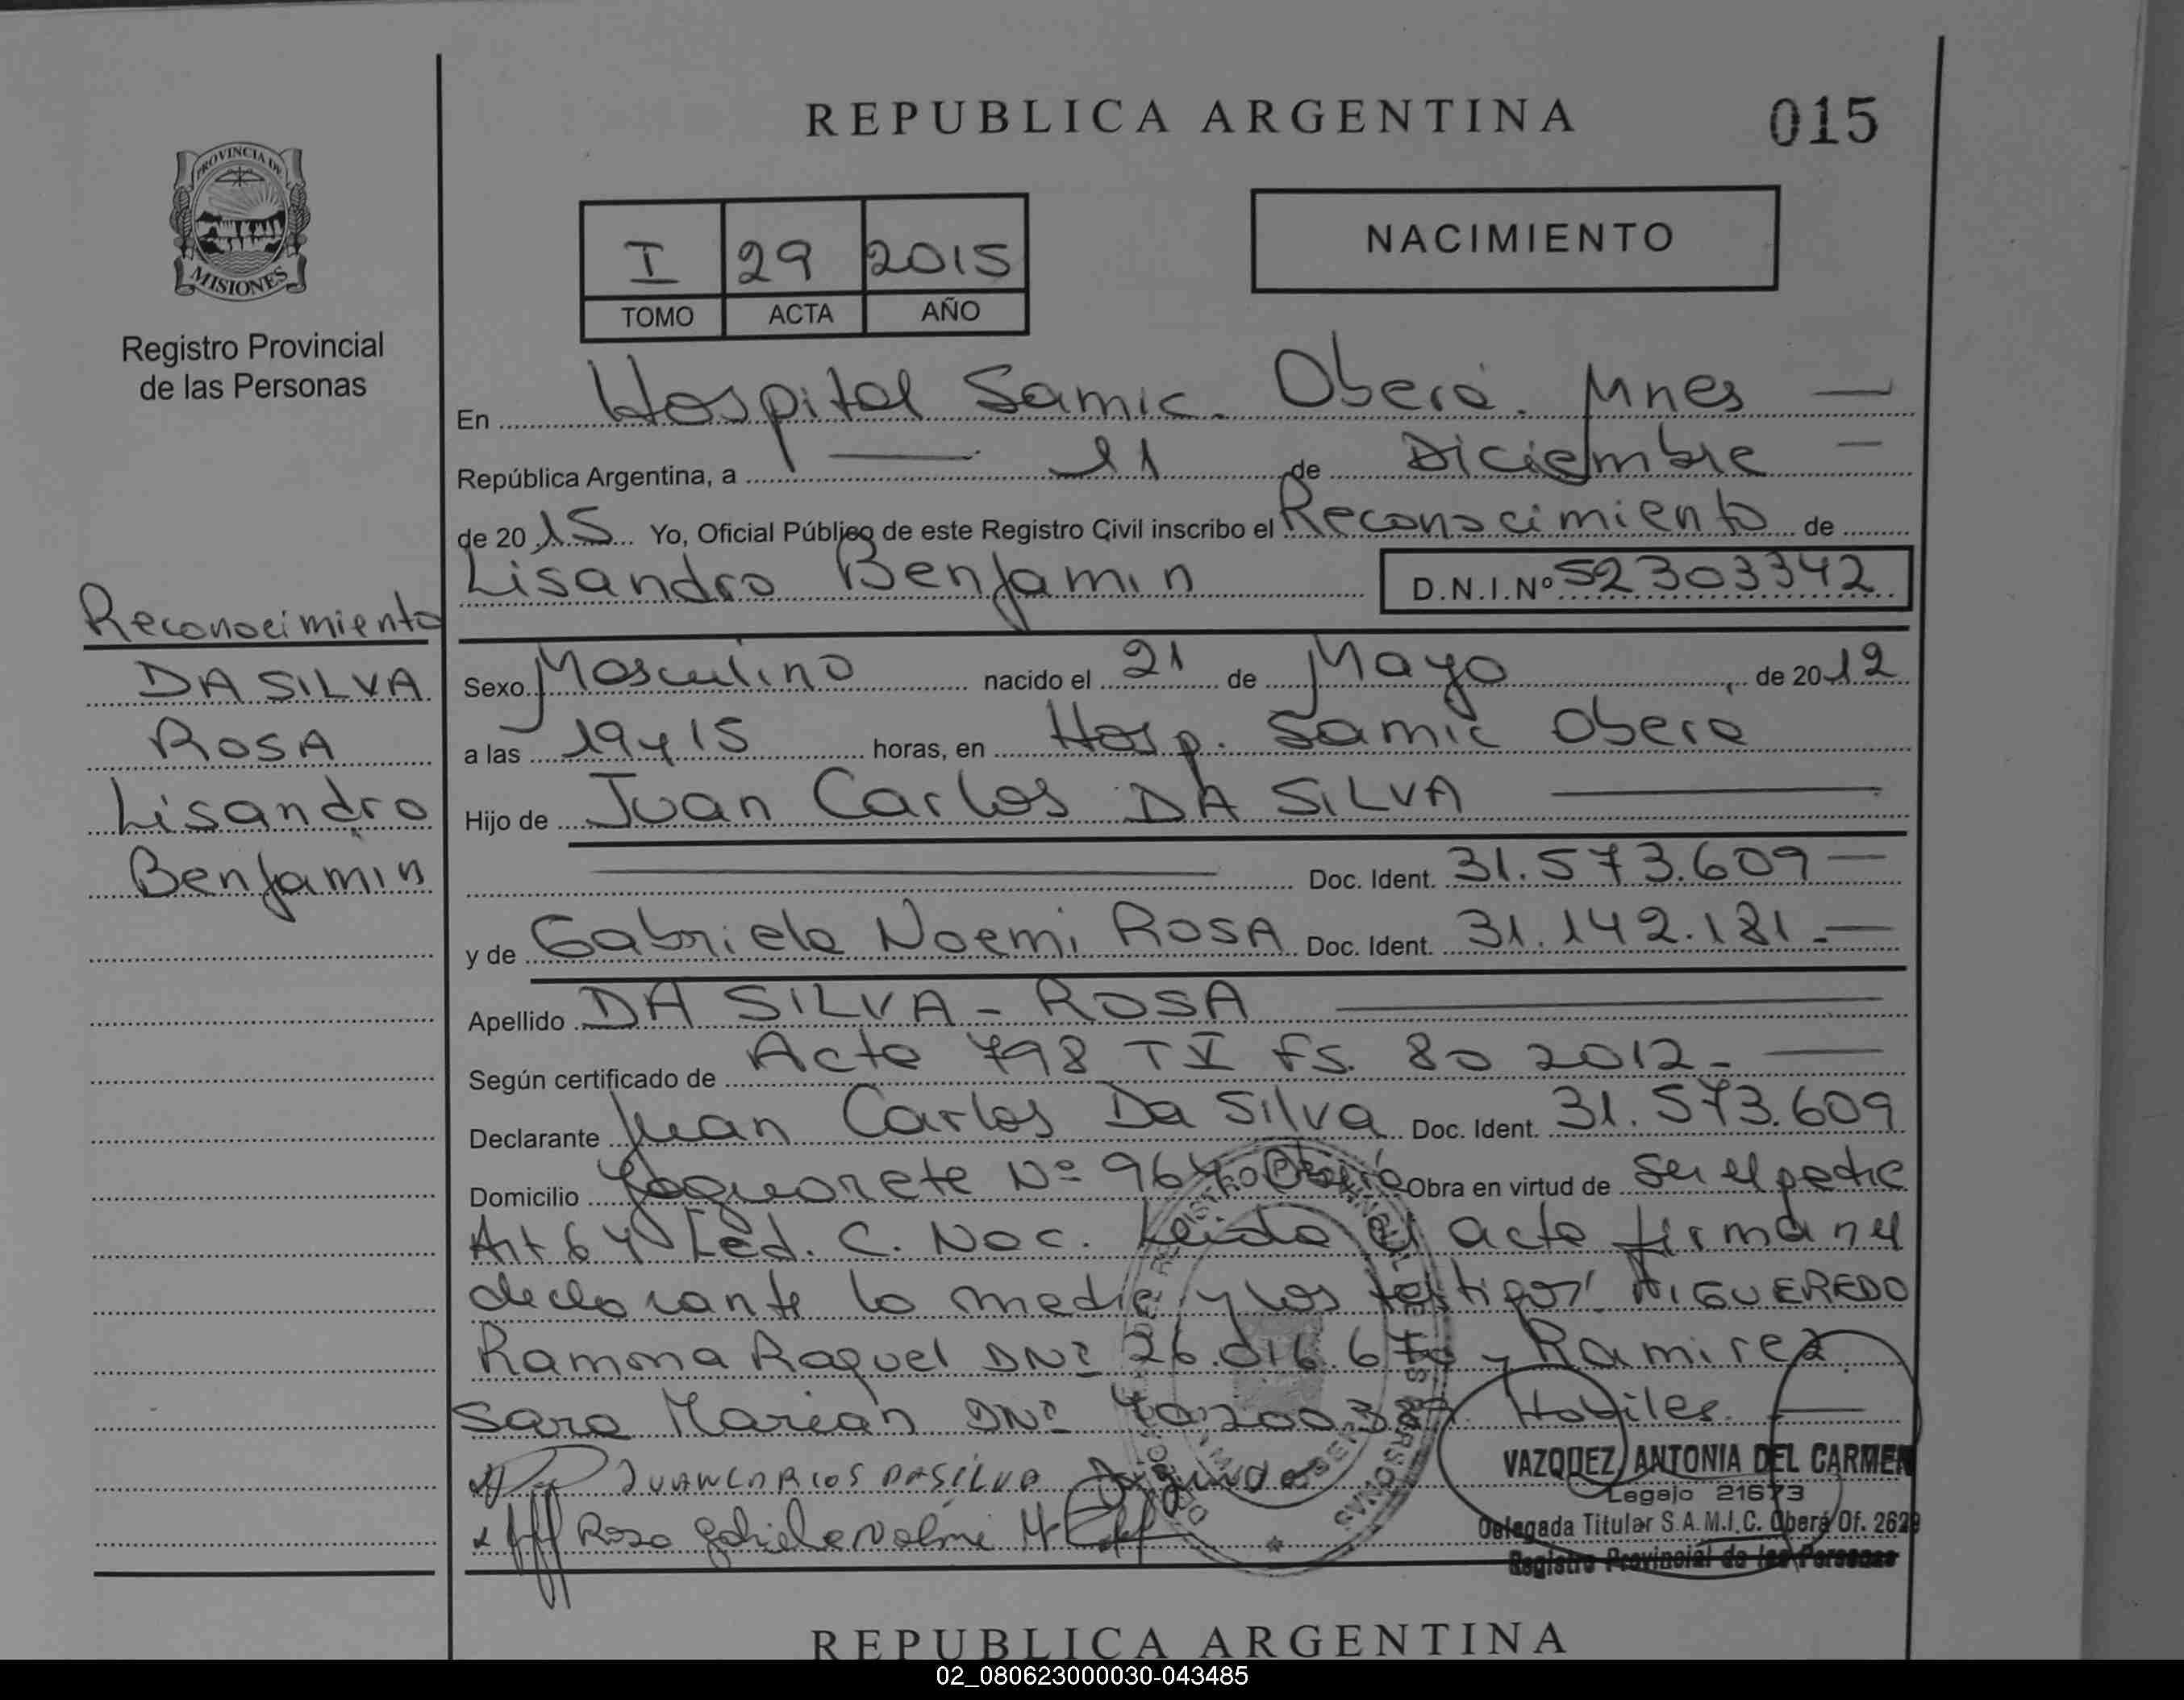 REPUBLICA ARGENTINA
015
PROVINCIA DE
MISIONES
Registro Provincial
de las Personas
I 29 2015
TOMO ACTA AÑO
NACIMIENTO
En Hospital Samic. Oberá. Mnes
República Argentina, a 11 de Diciembre
de 2015 Yo, Oficial Público de este Registro Civil inscribo el Reconocimiento de
Lisandro Benjamin D.N.I.Nº 52303342
Reconocimiento
DA SILVA
ROSA
Lisandro
Benjamin
Sexo Masculino nacido el 21 de Mayo, de 2012
a las 19 y 15 horas, en Hosp. Samic Oberá
Hijo de Juan Carlos DA SILVA
Doc. Ident. 31.573.609
y de Gabriela Noemi ROSA Doc. Ident. 31.142.181.-
Apellido DA SILVA - ROSA
Según certificado de Acta 798 T I FS. 80 2012-
Declarante Juan Carlos Da Silva Doc. Ident. 31.573.609
Domicilio Nº Obra en virtud de ser el padre
Art 64 C. Nac. Leida el acta firman el
declarante la madre y los testigos: FIGUEREDO
Ramona Raquel DNI 26.016.6 y Ramirez
Sara DNI Habiles.
JUAN CARLOS DA SILVA
Rosa
VAZQUEZ ANTONIA DEL CARMEN
Legajo 21673
Delegada Titular S.A.M.I.C. Oberá Of. 2629
Registro Provincial de las Personas
REPUBLICA ARGENTINA
02_080623000030-043485